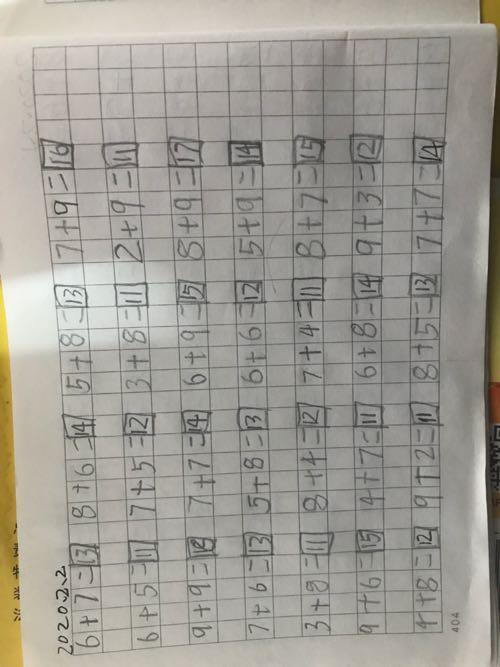 2020.2.2
6+7=13 8+6=14 5+8=13 7+9=16
6+5=11 7+5=12 3+8=11 2+9=11
9+9=18 7+7=14 6+9=15 8+9=17
7+6=13 5+8=13 6+6=12 5+9=14
3+8=11 8+4=12 7+4=11 8+7=15
9+6=15 4+7=11 6+8=14 9+3=12
4+8=12 9+2=11 8+5=13 7+7=14
404